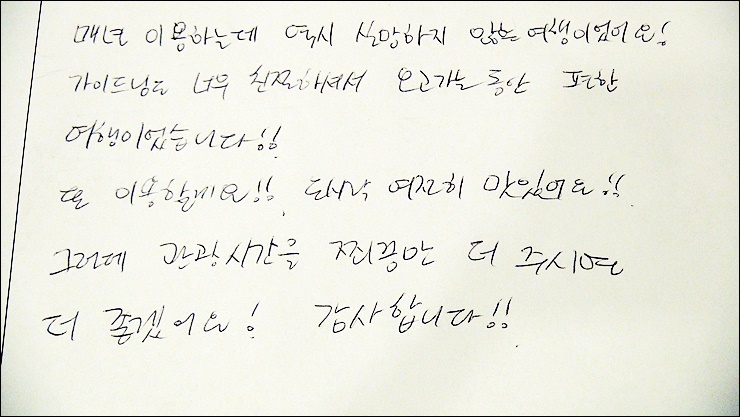 매년 이용하는데 역시 실망하지 않는 여행이었어요!
가이드님도 너무 친절하셔서 오고가는 동안 편한
여행이었습니다!!
또 이용할게요!! 도시락 여전히 맛있어요!!
그런데 관광시간을 찌끔만 더 주시면
더 좋겠어요! 감사합니다!!